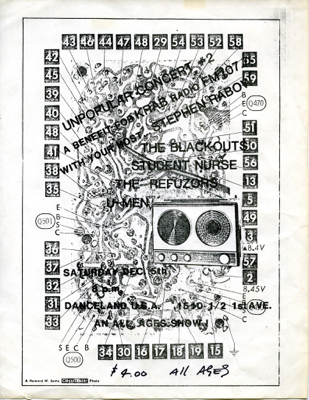 43 46 44 47 48 29 54 53 52 58
42
45
39
40
48
41
38
35
Q501
E
B
S
C
36
37
32
31
33
55
59
B
E
C
Q470
51
50
56
13
5
49
3
8.4V
57
2
8.45V
1
UNPOPULAR CONCERT #2
A BENEFIT FOR KRAB RADIO FM 107.7
WITH YOUR HOST STEPHEN RABOW
THE BLACKOUTS
STUDENT NURSE
THE REFUZORS
U-MEN
SATURDAY DEC. 5th
8 p.m.
DANCELAND U.S.A. 1510-1/2 1st AVE.
AN ALL AGES SHOW!
S E C B
Q500
34 30 16 17 18 19 15
A Howard W. Sams Photo
$4.00 All AGES